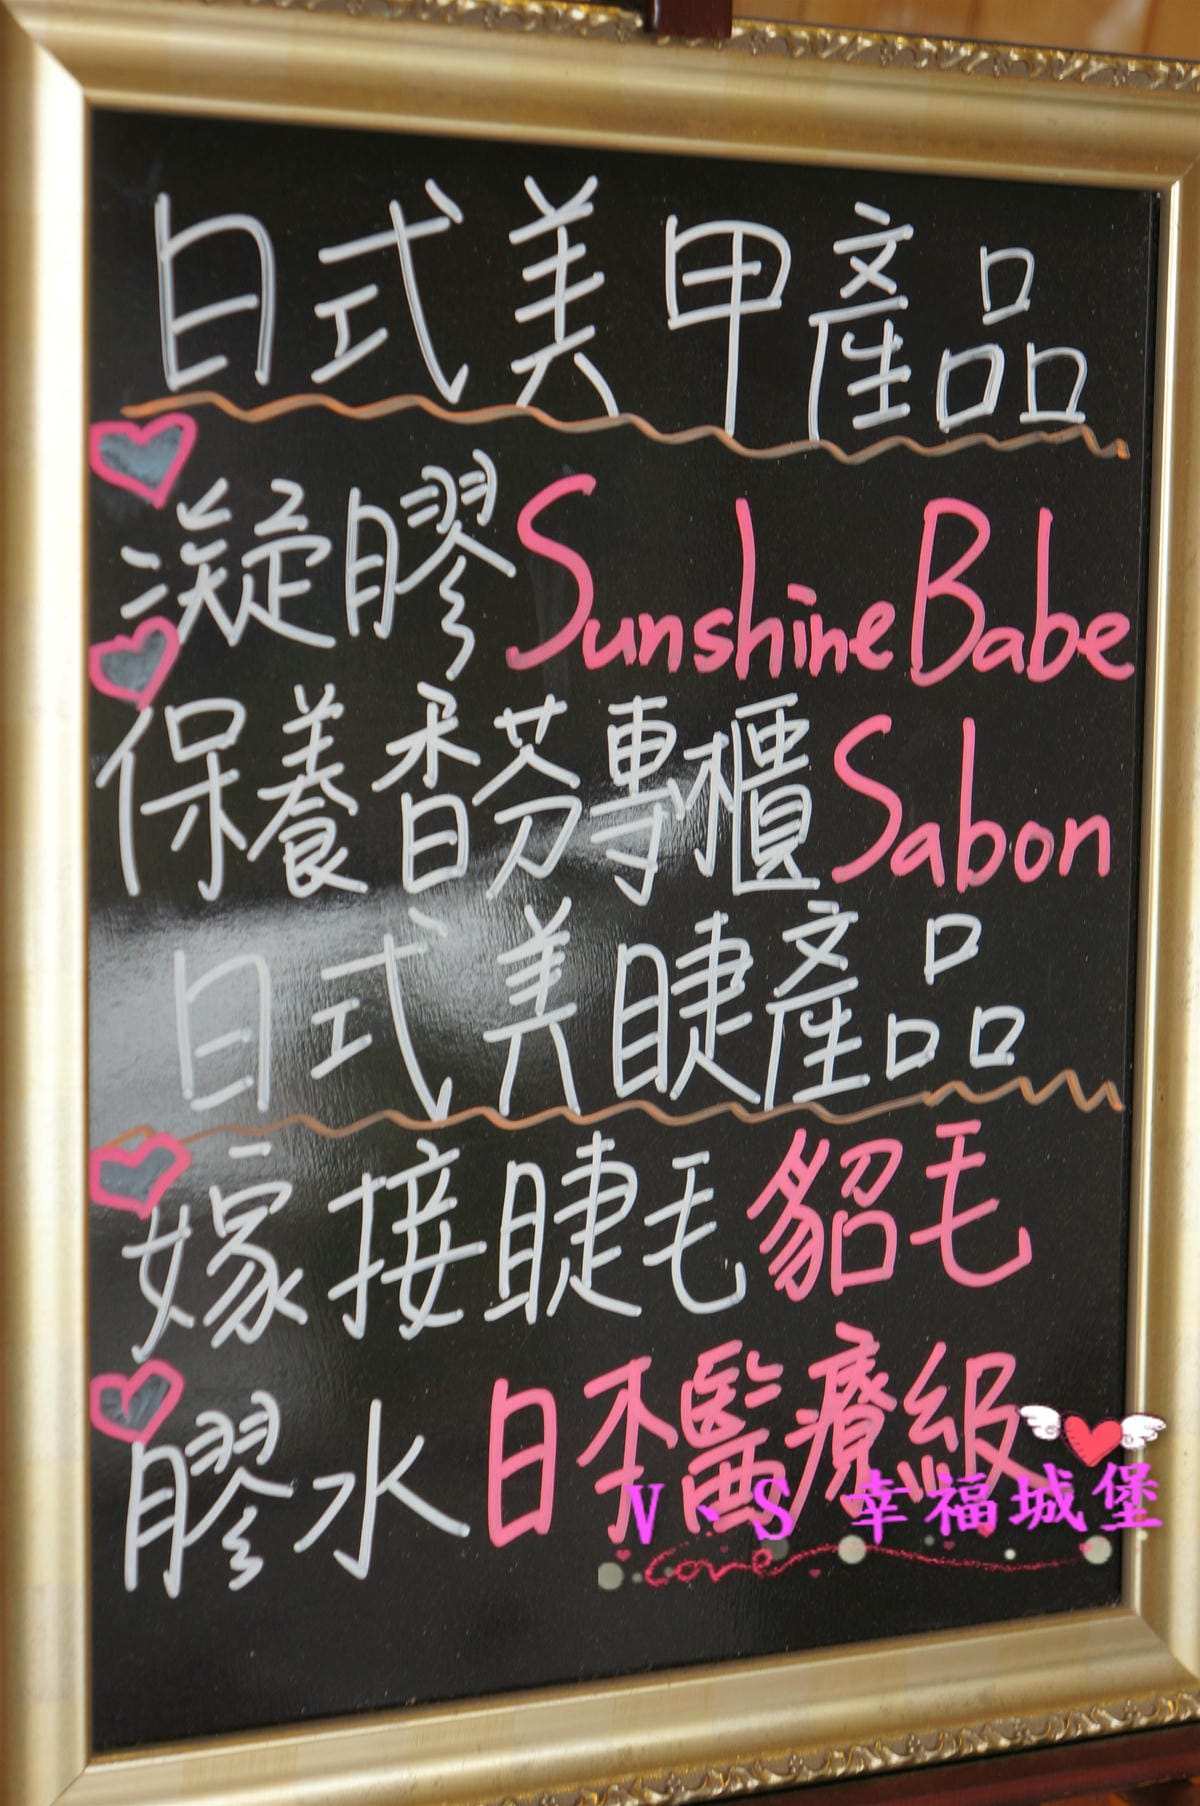 日式美甲產品
凝膠SunshineBabe
保養香芬專櫃Sabon
日式美睫產品
嫁接睫毛貂毛
膠水日本醫療級
V、S 幸福城堡
Love